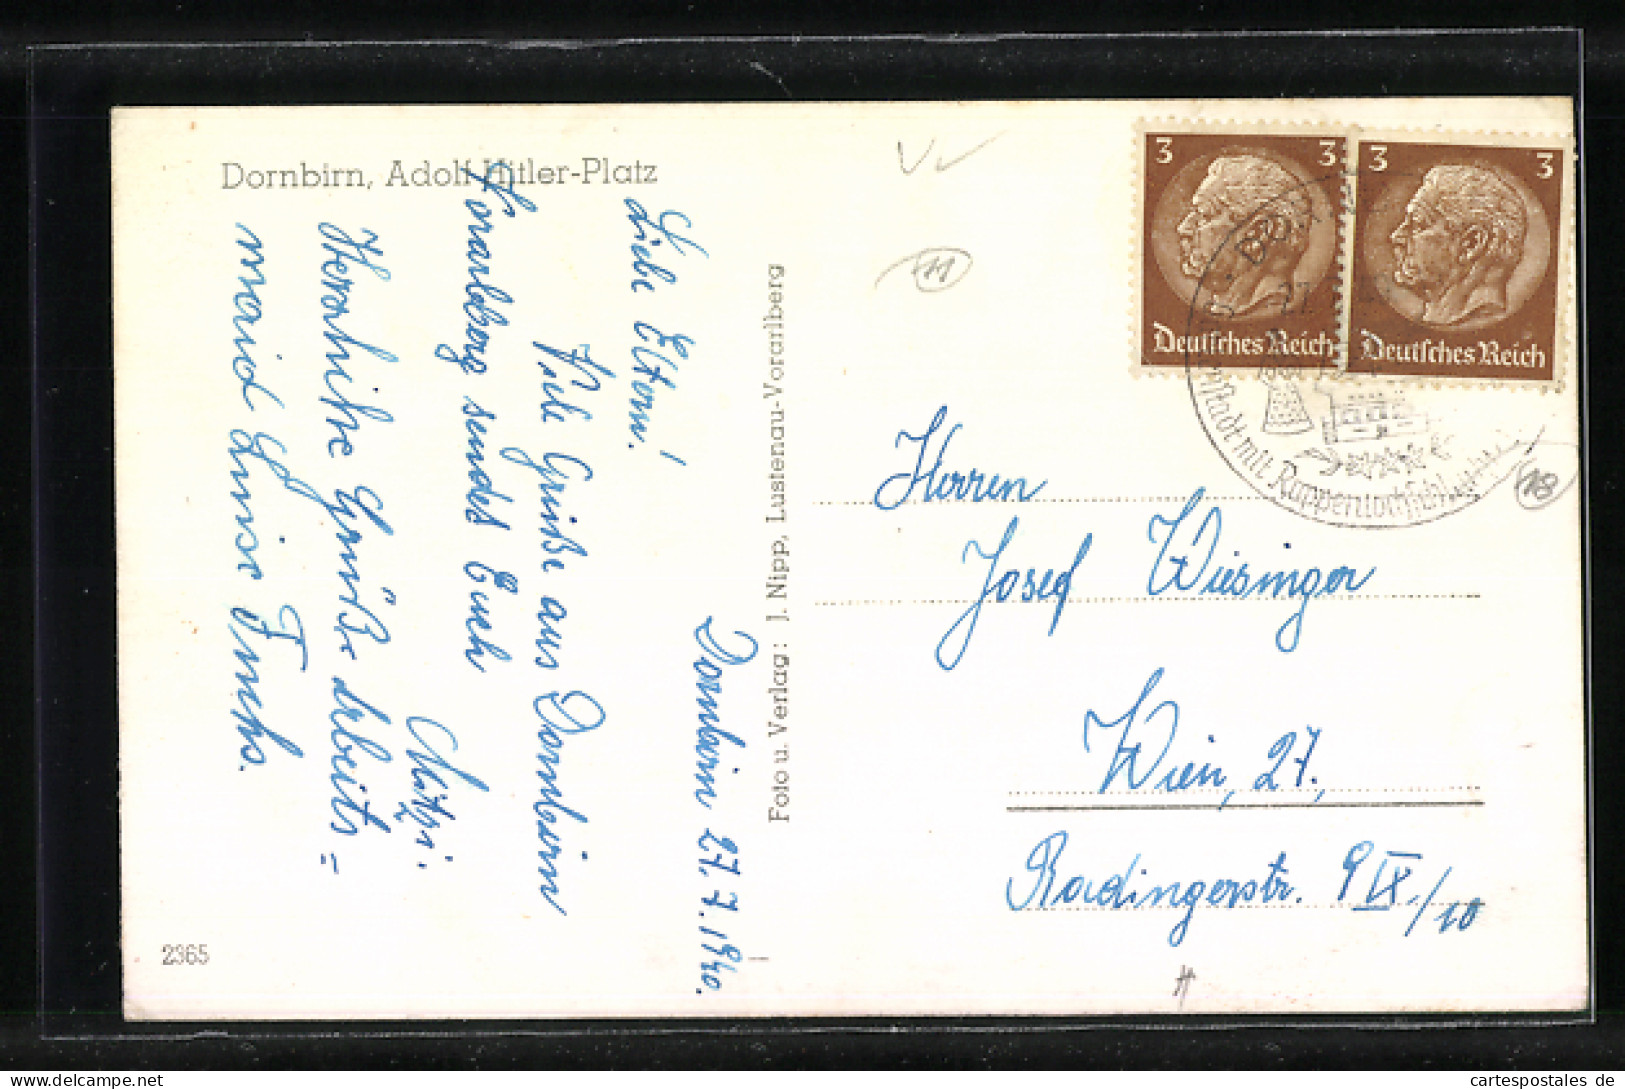 Dornbirn, Adolf Hitler-Platz
Dornbirn 27.7.1940.
Liebe Eltern!
Viele Grüße aus Dornbirn
Vorarlberg sendet Euch
Mitzi.
Herzliche Grüße Arbeits=
maid Luise Fuchs.
2365
Foto u. Verlag: J. Nipp, Lustenau-Vorarlberg
3 3
Deutsches Reich
3 3
Deutsches Reich
27.
stadt mit Rappenlochschlucht
11
18
Herren
Josef Wiesinger
Wien, 27.,
Radingerstr. 9 IX./10
cartespostales de